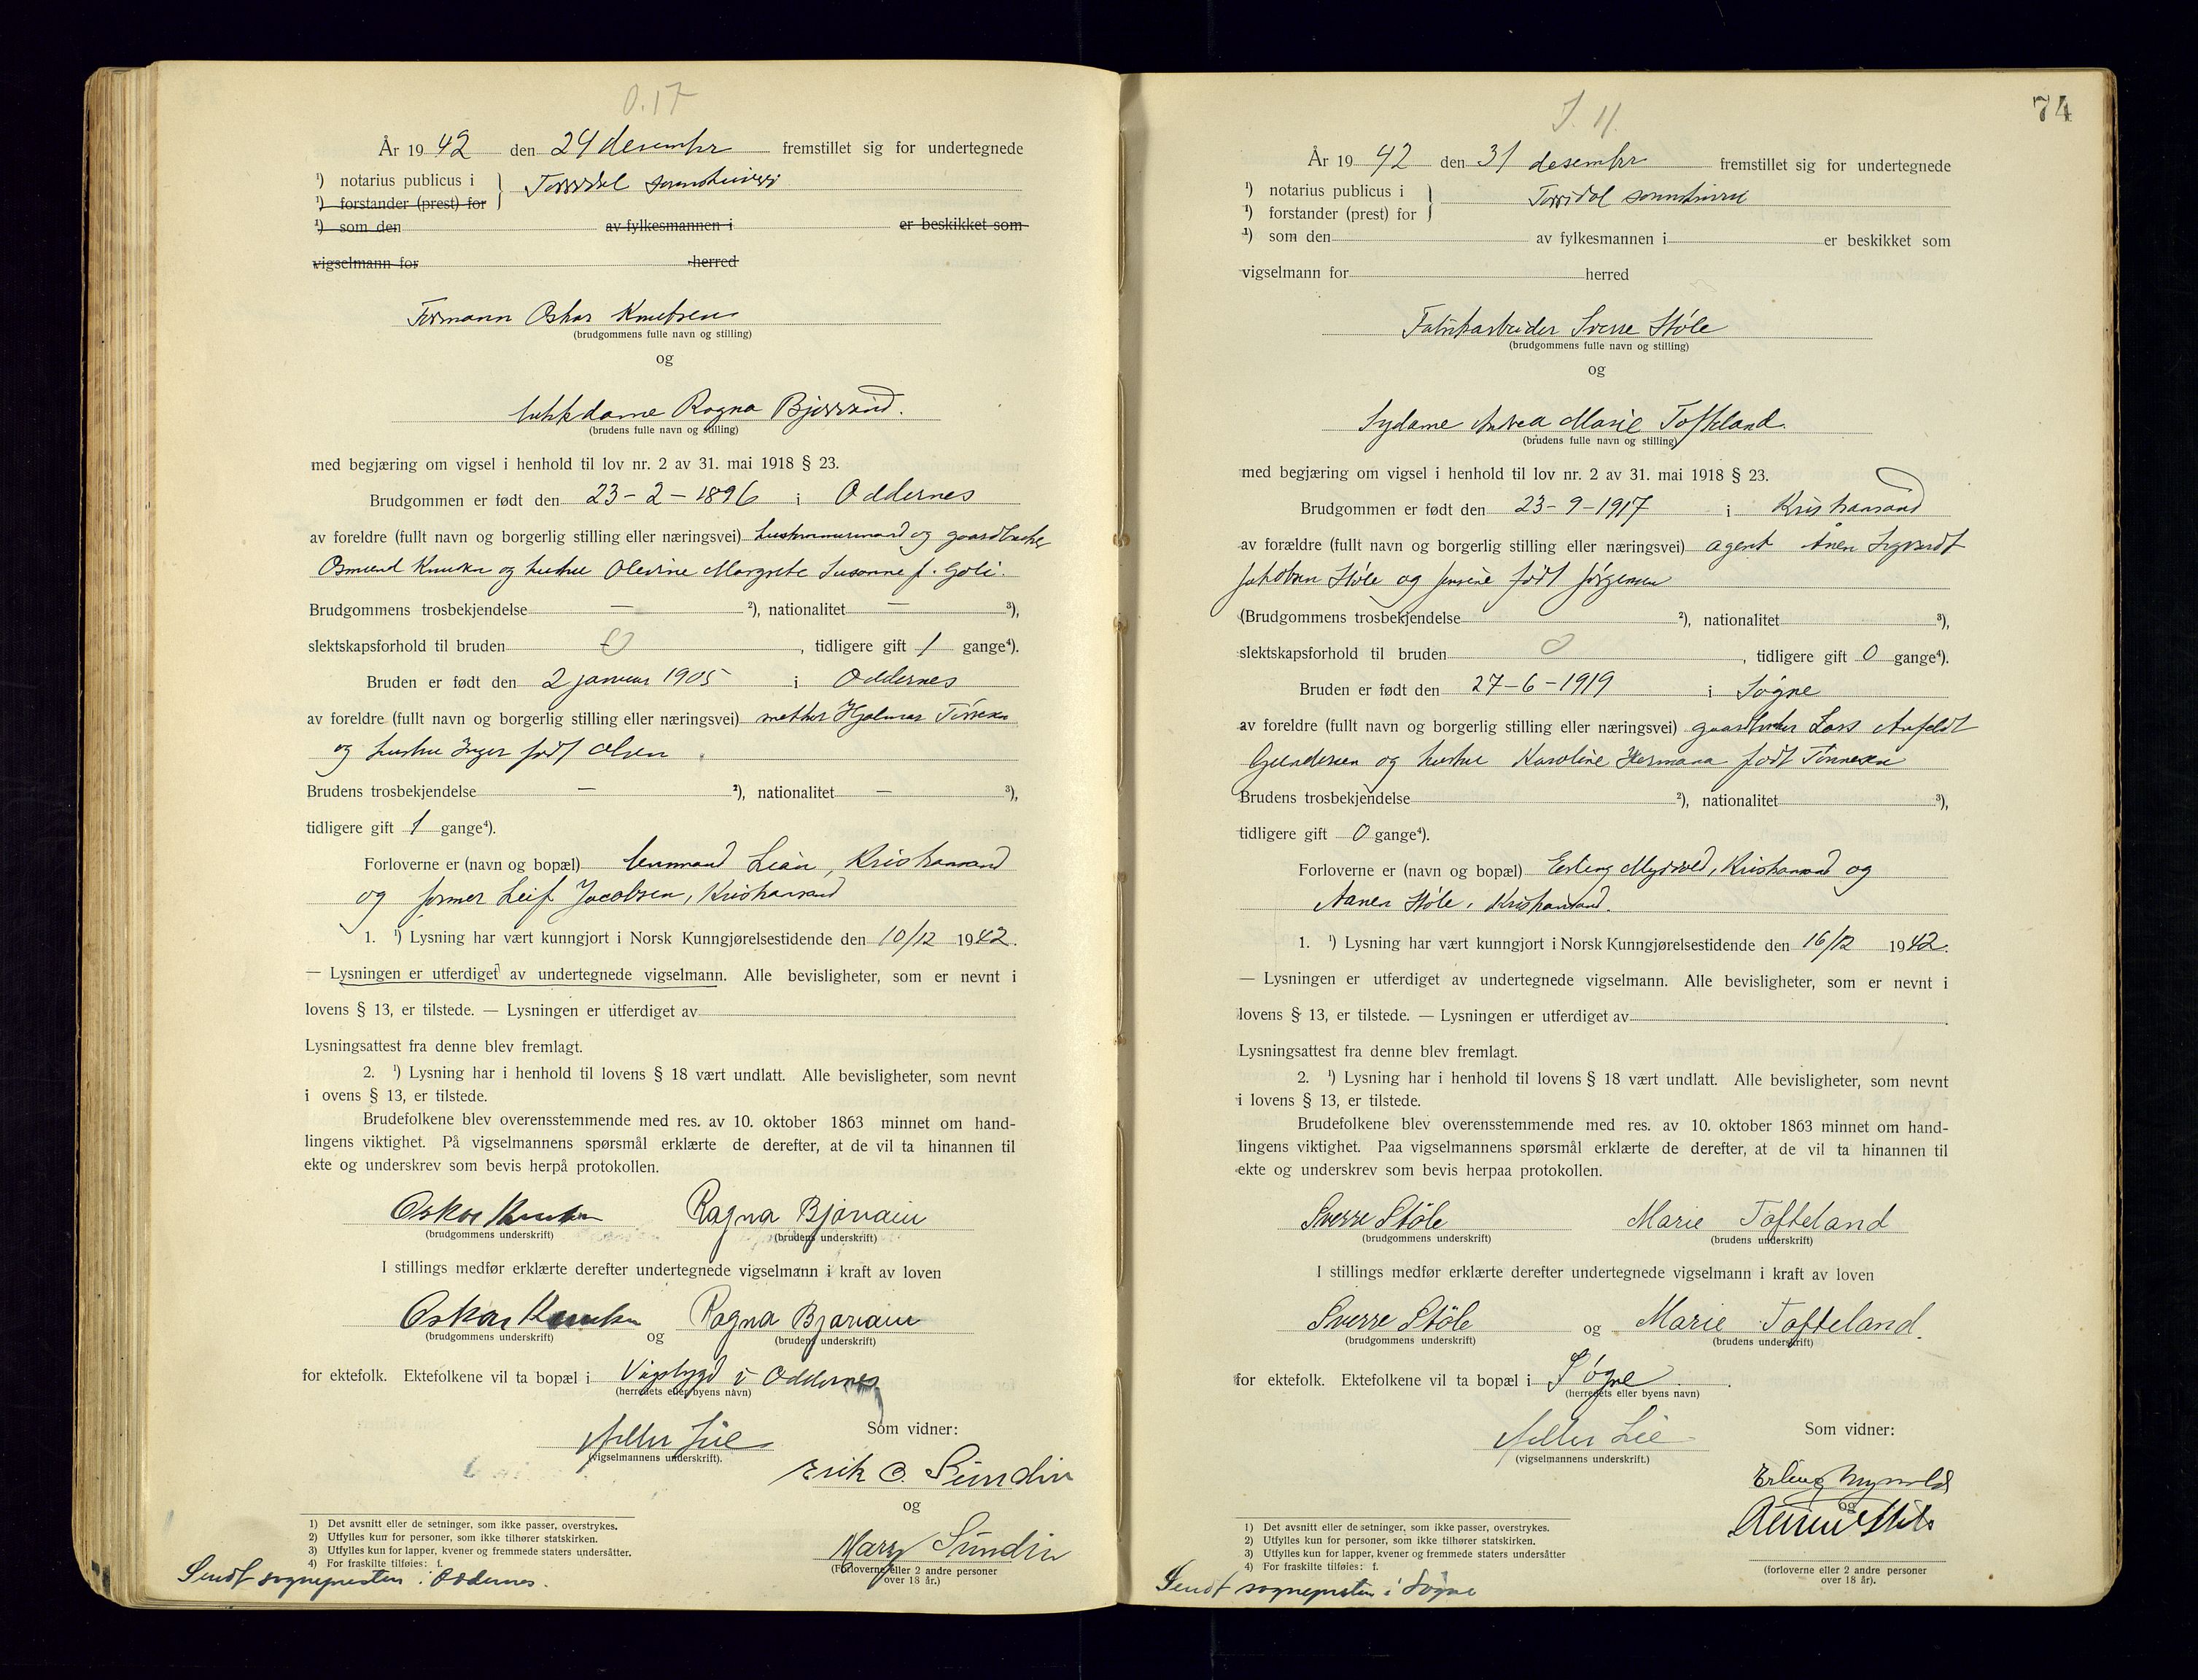 O.17
År 1942 den 24 desember fremstillet sig for undertegnede
¹) notarius publicus i
¹) forstander (prest) for
Torridal sorenskriveri
¹) som den av fylkesmannen i er beskikket som
vigselmann for herred
Formann Oskar Knutsen
(brudgommens fulle navn og stilling)
og
Ragna Bjorvand.
(brudens fulle navn og stilling)
med begjæring om vigsel i henhold til lov nr. 2 av 31. mai 1918 § 23.
Brudgommen er født den 23-2-1896 i Oddernes
av foreldre (fullt navn og borgerlig stilling eller næringsvei) og gaardbruker
Osmund Knutsen og hustru Olevine Margrete Susanne f.
Brudgommens trosbekjendelse — ²), nationalitet — ³),
slektskapsforhold til bruden 0, tidligere gift 1 gange⁴).
Bruden er født den 2 januar 1905 i Oddernes
av foreldre (fullt navn og borgerlig stilling eller næringsvei) Hjalmar
og hustru Inger født Olsen
Brudens trosbekjendelse — ²), nationalitet — ³),
tidligere gift 1 gange⁴).
Forloverne er (navn og bopæl) Lian, Kristiansand
og Leif Jacobsen, Kristiansand
1. ¹) Lysning har vært kunngjort i Norsk Kunngjørelsestidende den 10/12 1942.
— Lysningen er utferdiget av undertegnede vigselmann. Alle bevisligheter, som er nevnt i
lovens § 13, er tilstede. — Lysningen er utferdiget av
Lysningsattest fra denne blev fremlagt.
2. ¹) Lysning har i henhold til lovens § 18 vært undlatt. Alle bevisligheter, som nevnt
i ovens § 13, er tilstede.
Brudefolkene blev overensstemmende med res. av 10. oktober 1863 minnet om hand-
lingens viktighet. På vigselmannens spørsmål erklærte de derefter, at de vil ta hinannen til
ekte og underskrev som bevis herpå protokollen.
Oskar Knutsen Ragna Bjorvain
(brudgommens underskrift) (brudens underskrift)
I stillings medfør erklærte derefter undertegnede vigselmann i kraft av loven
Oskar Knutsen og Ragna Bjorvain
(brudgommens underskrift) (brudens underskrift)
for ektefolk. Ektefolkene vil ta bopæl i Vågsbygd i Oddernes
(herredets eller byens navn)
Som vidner:
Lie
(vigselmannens underskrift).
Erik O. Sundin
og
Mary Sundin
(Forloverne eller 2 andre personer
over 18 år.)
1) Det avsnitt eller de setninger, som ikke passer, overstrykes.
2) Utfylles kun for personer, som ikke tilhører statskirken.
3) Utfylles kun for lapper, kvener og fremmede staters undersåtter.
4) For fraskilte tilføies: f.
Sendt sognepresten i Oddernes.
74
S. 11.
År 1942 den 31 desember fremstillet sig for undertegnede
¹) notarius publicus i
¹) forstander (prest) for
Torridal sorenskriveri
¹) som den av fylkesmannen i er beskikket som
vigselmann for herred
Fabrikarbeider Sverre Støle
(brudgommens fulle navn og stilling)
og
Sydame Andrea Marie Tofteland.
(brudens fulle navn og stilling)
med begjæring om vigsel i henhold til lov nr. 2 av 31. mai 1918 § 23.
Brudgommen er født den 23-9-1917 i Kristiansand
av forældre (fullt navn og borgerlig stilling eller næringsvei) agent Ånen Sigvardt
Jakobsen Støle og Jensine født Jørgensen
(Brudgommens trosbekjendelse ²), nationalitet ³),
slektskapsforhold til bruden 0, tidligere gift 0 gange⁴).
Bruden er født den 27-6-1919 i Søgne
av foreldre (fullt navn og borgerlig stilling eller næringsvei) gaardbruker Lars Anfeldt
Gundersen og hustru Karoline Hermana født Tønnesen
Brudens trosbekjendelse ²), nationalitet ³),
tidligere gift 0 gange⁴).
Forloverne er (navn og bopæl) Erling Myrvold, Kristiansand og
Aanen Støle, Kristiansand.
1. ¹) Lysning har vært kunngjort i Norsk Kunngjørelsestidende den 16/12 1942.
— Lysningen er utferdiget av undertegnede vigselmann. Alle bevisligheter, som er nevnt i
lovens § 13, er tilstede. — Lysningen er utferdiget av
Lysningsattest fra denne blev fremlagt.
2. ¹) Lysning har i henhold til lovens § 18 vært undlatt. Alle bevisligheter, som nevnt
i lovens § 13, er tilstede.
Brudefolkene blev overensstemmende med res. av 10. oktober 1863 minnet om hand-
lingens viktighet. Paa vigselmannens spørsmål erklærte de derefter, at de vil ta hinannen til
ekte og underskrev som bevis herpaa protokollen.
Sverre Støle Marie Tofteland
(brudgommens underskrift) (brudens underskrift)
I stillings medfør erklærte derefter undertegnede vigselmann i kraft av loven
Sverre Støle og Marie Tofteland.
(brudgommens underskrift) (brudens underskrift)
for ektefolk. Ektefolkene vil ta bopæl i Søgne.
(herredets eller byens navn)
Som vidner:
Lie
(vigselmannens underskrift.)
Erling Myrvold
og
Aanen Støle
(forloverne eller 2 andre personer
over 18 år).
1) Det avsnitt eller de setninger, som ikke passer, overstrykes.
2) Utfylles kun for personer, som ikke tilhører statskirken.
3) Utfylles kun for lapper, kvener og fremmede staters undersåtter
4) For fraskilte tilføies: f.
Sendt sognepresten i Søgne